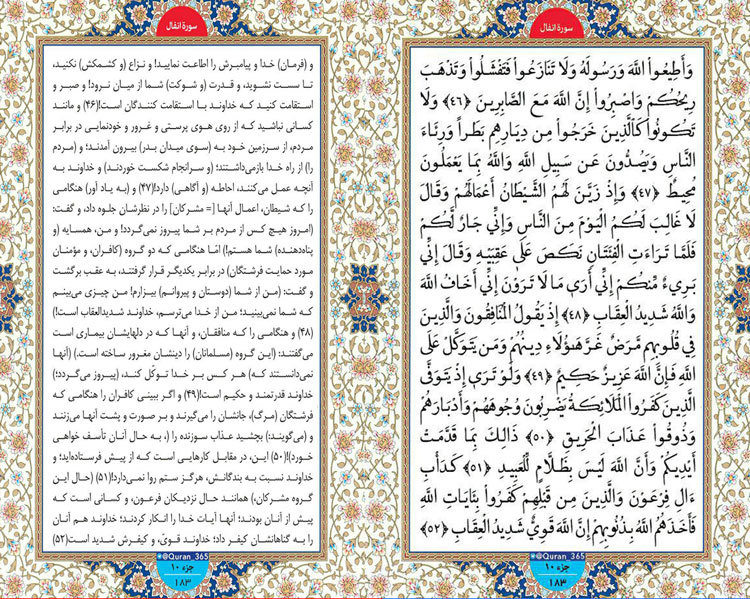 سورة انفال
وَأَطِيعُواْ اللَّهَ وَرَسُولَهُ وَلَا تَنَازَعُواْ فَتَفْشَلُواْ وَتَذْهَبَ
رِيحُكُمْ وَاصْبِرُواْ إِنَّ اللَّهَ مَعَ الصَّابِرِينَ ﴿٤٦﴾ وَلَا
تَكُونُواْ كَالَّذِينَ خَرَجُواْ مِن دِيَارِهِم بَطَراً وَرِئَاءَ
النَّاسِ وَيَصُدُّونَ عَن سَبِيلِ اللَّهِ وَاللَّهُ بِمَا يَعْمَلُونَ
مُحِيطٌ ﴿٤٧﴾ وَإِذْ زَيَّنَ لَهُمُ الشَّيْطَانُ أَعْمَالَهُمْ وَقَالَ
لَا غَالِبَ لَكُمُ الْيَوْمَ مِنَ النَّاسِ وَإِنِّي جَارٌ لَّكُمْ
فَلَمَّا تَرَاءَتِ الْفِئَتَانِ نَكَصَ عَلَى عَقِبَيْهِ وَقَالَ إِنِّي
بَرِيءٌ مِّنكُمْ إِنِّي أَرَى مَا لَا تَرَوْنَ إِنِّي أَخَافُ اللَّهَ
وَاللَّهُ شَدِيدُ الْعِقَابِ ﴿٤٨﴾ إِذْ يَقُولُ الْمُنَافِقُونَ وَالَّذِينَ
فِي قُلُوبِهِم مَّرَضٌ غَرَّ هَؤُلَاءِ دِينُهُمْ وَمَن يَتَوَكَّلْ عَلَى
اللَّهِ فَإِنَّ اللَّهَ عَزِيزٌ حَكِيمٌ ﴿٤٩﴾ وَلَوْ تَرَى إِذْ يَتَوَفَّى
الَّذِينَ كَفَرُواْ الْمَلَائِكَةُ يَضْرِبُونَ وُجُوهَهُمْ وَأَدْبَارَهُمْ
وَذُوقُواْ عَذَابَ الْحَرِيقِ ﴿٥٠﴾ ذَالِكَ بِمَا قَدَّمَتْ
أَيْدِيكُمْ وَأَنَّ اللَّهَ لَيْسَ بِظَلَّامٍ لِّلْعَبِيدِ ﴿٥١﴾ كَدَأْبِ
ءَالِ فِرْعَوْنَ وَالَّذِينَ مِن قَبْلِهِمْ كَفَرُواْ بِئَايَاتِ اللَّهِ
فَأَخَذَهُمُ اللَّهُ بِذُنُوبِهِمْ إِنَّ اللَّهَ قَوِيٌّ شَدِيدُ الْعِقَابِ ﴿٥٢﴾
@Quran_365
جزء ۱۰
۱۸۳
سورة انفال
و (فرمان) خدا و پیامبرش را اطاعت نمایید! و نزاع (و کشمکش) نکنید،
تا سست نشوید، و قدرت (و شوکت) شما از میان نرود! و صبر و
استقامت کنید که خداوند با استقامت کنندگان است!(۴۶) و مانند
کسانی نباشید که از روی هوی پرستی و غرور و خودنمایی در برابر
مردم، از سرزمین خود به (سوی میدان بدر) بیرون آمدند؛ و (مردم
را) از راه خدا بازمی‌داشتند؛ (و سرانجام شکست خوردند) و خداوند به
آنچه عمل می‌کنند، احاطه (و آگاهی) دارد!(۴۷) و (به یاد آور) هنگامی
را که شیطان، اعمال آنها [= مشرکان] را در نظرشان جلوه داد، و گفت:
(امروز هیچ کس از مردم بر شما پیروز نمی‌گردد! و من، همسایه (و
پناه‌دهنده) شما هستم!) امّا هنگامی که دو گروه (کافران، و مؤمنان
مورد حمایت فرشتگان) در برابر یکدیگر قرار گرفتند، به عقب برگشت
و گفت: (من از شما (دوستان و پیروانم) بیزارم! من چیزی می‌بینم
که شما نمی‌بینید؛ من از خدا می‌ترسم، خداوند شدیدالعقاب است!)
(۴۸) و هنگامی را که منافقان، و آنها که در دلهایشان بیماری است
می‌گفتند: (این گروه (مسلمانان) را دینشان مغرور ساخته است.) (آنها
نمی‌دانستند که) هر کس بر خدا توکّل کند، (پیروز می‌گردد؛)
خداوند قدرتمند و حکیم است!(۴۹) و اگر ببینی کافران را هنگامی که
فرشتگان (مرگ)، جانشان را می‌گیرند و بر صورت و پشت آنها می‌زنند
و (می‌گویند:) بچشید عذاب سوزنده را (، به حال آنان تأسف خواهی
خورد)!(۵۰) این، در مقابل کارهایی است که از پیش فرستاده‌اید؛ و
خداوند نسبت به بندگانش، هرگز ستم روا نمی‌دارد!(۵۱) (حال این
گروه مشرکان،) همانند حال نزدیکان فرعون، و کسانی است که
پیش از آنان بودند؛ آنها آیات خدا را انکار کردند؛ خداوند هم آنان
را به گناهانشان کیفر داد؛ خداوند قویّ، و کیفرش شدید است(۵۲)
@Quran_365
جزء ۱۰
۱۸۳